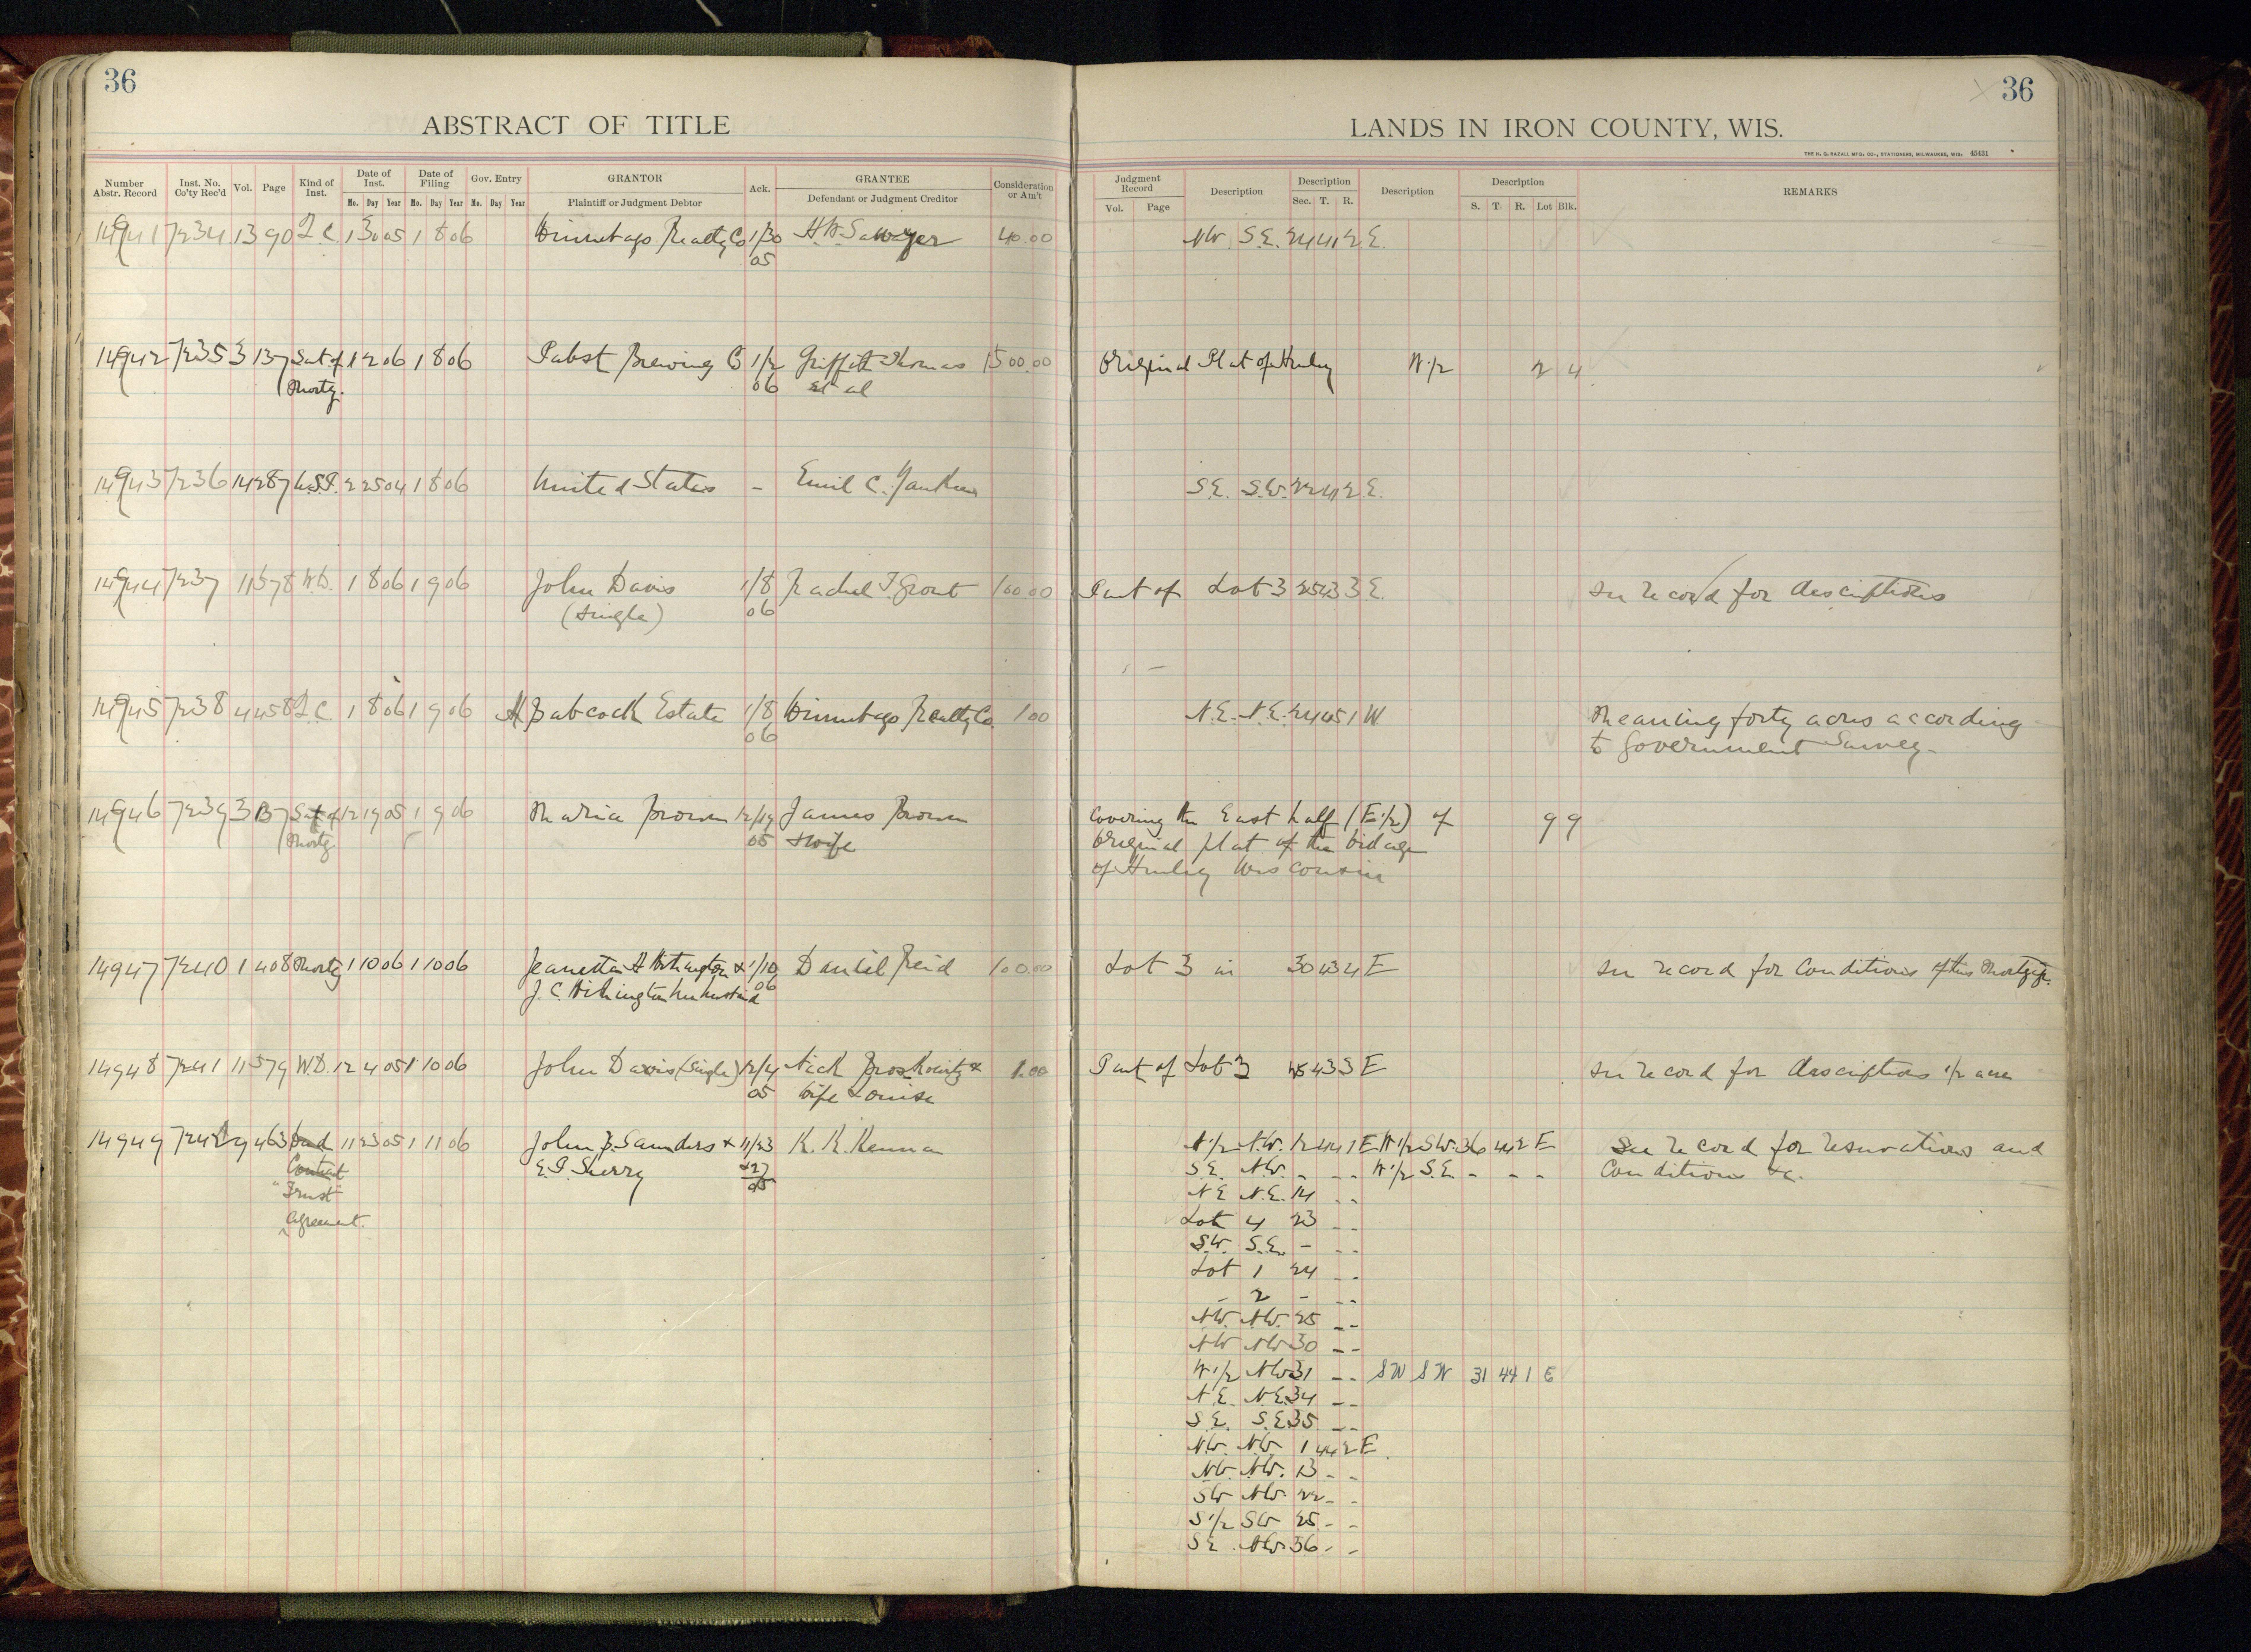 36
ABSTRACT OF TITLE
Number Abstr. Record Inst. No. Co'ty Rec'd Vol. Page Kind of Inst. Date of Inst. Date of Filing Gov. Entry GRANTOR Ack. GRANTEE Consideration or Am't
Mo. Day Year Mo. Day Year Mo. Day Year Plaintiff or Judgment Debtor Defendant or Judgment Creditor
14941 7234 13 90 Q.C. 1 30 05 1 8 06 Winnebago Realty Co 1/30 H.W. Sawyer 40.00
05
14942 7235 3 137 Sat of 1 2 06 1 8 06 Pabst Brewing Co 1/2 Griffith Thomas 1500.00
Mortg. 06 et al
14943 7236 14 287 U.S.P. 2 25 04 1 8 06 United States - Emil C.
14944 7237 11 578 W.D. 1 8 06 1 9 06 John Davis 1/8 Rachel T. Grout 100.00
(Single) 06
14945 7238 4 458 Q.C. 1 8 06 1 9 06 Babcock Estate 1/8 Winnebago Realty Co. 1.00
06
14946 7239 3 137 Sat of 12 19 05 1 9 06 Maria Brown 12/19 James Brown
Mortg. 05 & wife
14947 7240 1 408 Mortg 1 10 06 1 10 06 1/10 Daniel Reid 100.00
J. C. 06
14948 7241 11 579 W.D. 12 4 05 1 10 06 John Davis (Single) 12/4 Nick & 1.00
05 wife Louise
14949 7242 9 463 Deed 11 23 05 1 11 06 John B. Saunders & 11/23 K. K. Kennan
Contract E. P. Sherry & 27
"Trust" 05
Agreement.
36
LANDS IN IRON COUNTY, WIS.
THE H. G. RAZALL MFG. CO., STATIONERS, MILWAUKEE, WIS. 45431
Judgment Record Description Description Description Description REMARKS
Vol. Page Sec. T. R. S. T. R. Lot Blk.
NW. S.E. 24 41 2 E.
Original Plat of Hurley W 1/2 2 4
S.E. S.W. 22 41 2 E.
Part of Lot 3 25 43 3 E. See record for descriptions
N.E. N.E. 24 45 1 W Meaning forty acres according
to Government Survey.
Covering the East half (E 1/2) of 9 9
Original plat of the village
of Hurley Wisconsin
Lot 3 in 30 43 4 E See record for Conditions of this Mortgage.
Part of Lot 3 25 43 3 E See record for descriptions 1/2 acre
N 1/2 N.W. 12 44 1 E W 1/2 S.W. 36 44 2 E See record for reservations and
S.E. N.W. - - - W 1/2 S.E. - - - Conditions &c.
N E N.E. 14 - -
Lot 4 23 - -
S.W. S.E. - - -
Lot 1 24 - -
- 2 - - -
NW. NW. 25 - -
NW NW 30 - -
W 1/2 NW 31 - - SW SW 31 44 1 E
N.E. N.E. 34 - -
S.E. S.E. 35 - -
NW. NW 1 44 2 E
NW. NW. 13 - -
SW NW 22 - -
S 1/2 SW 25 - -
SE NW 36 - -